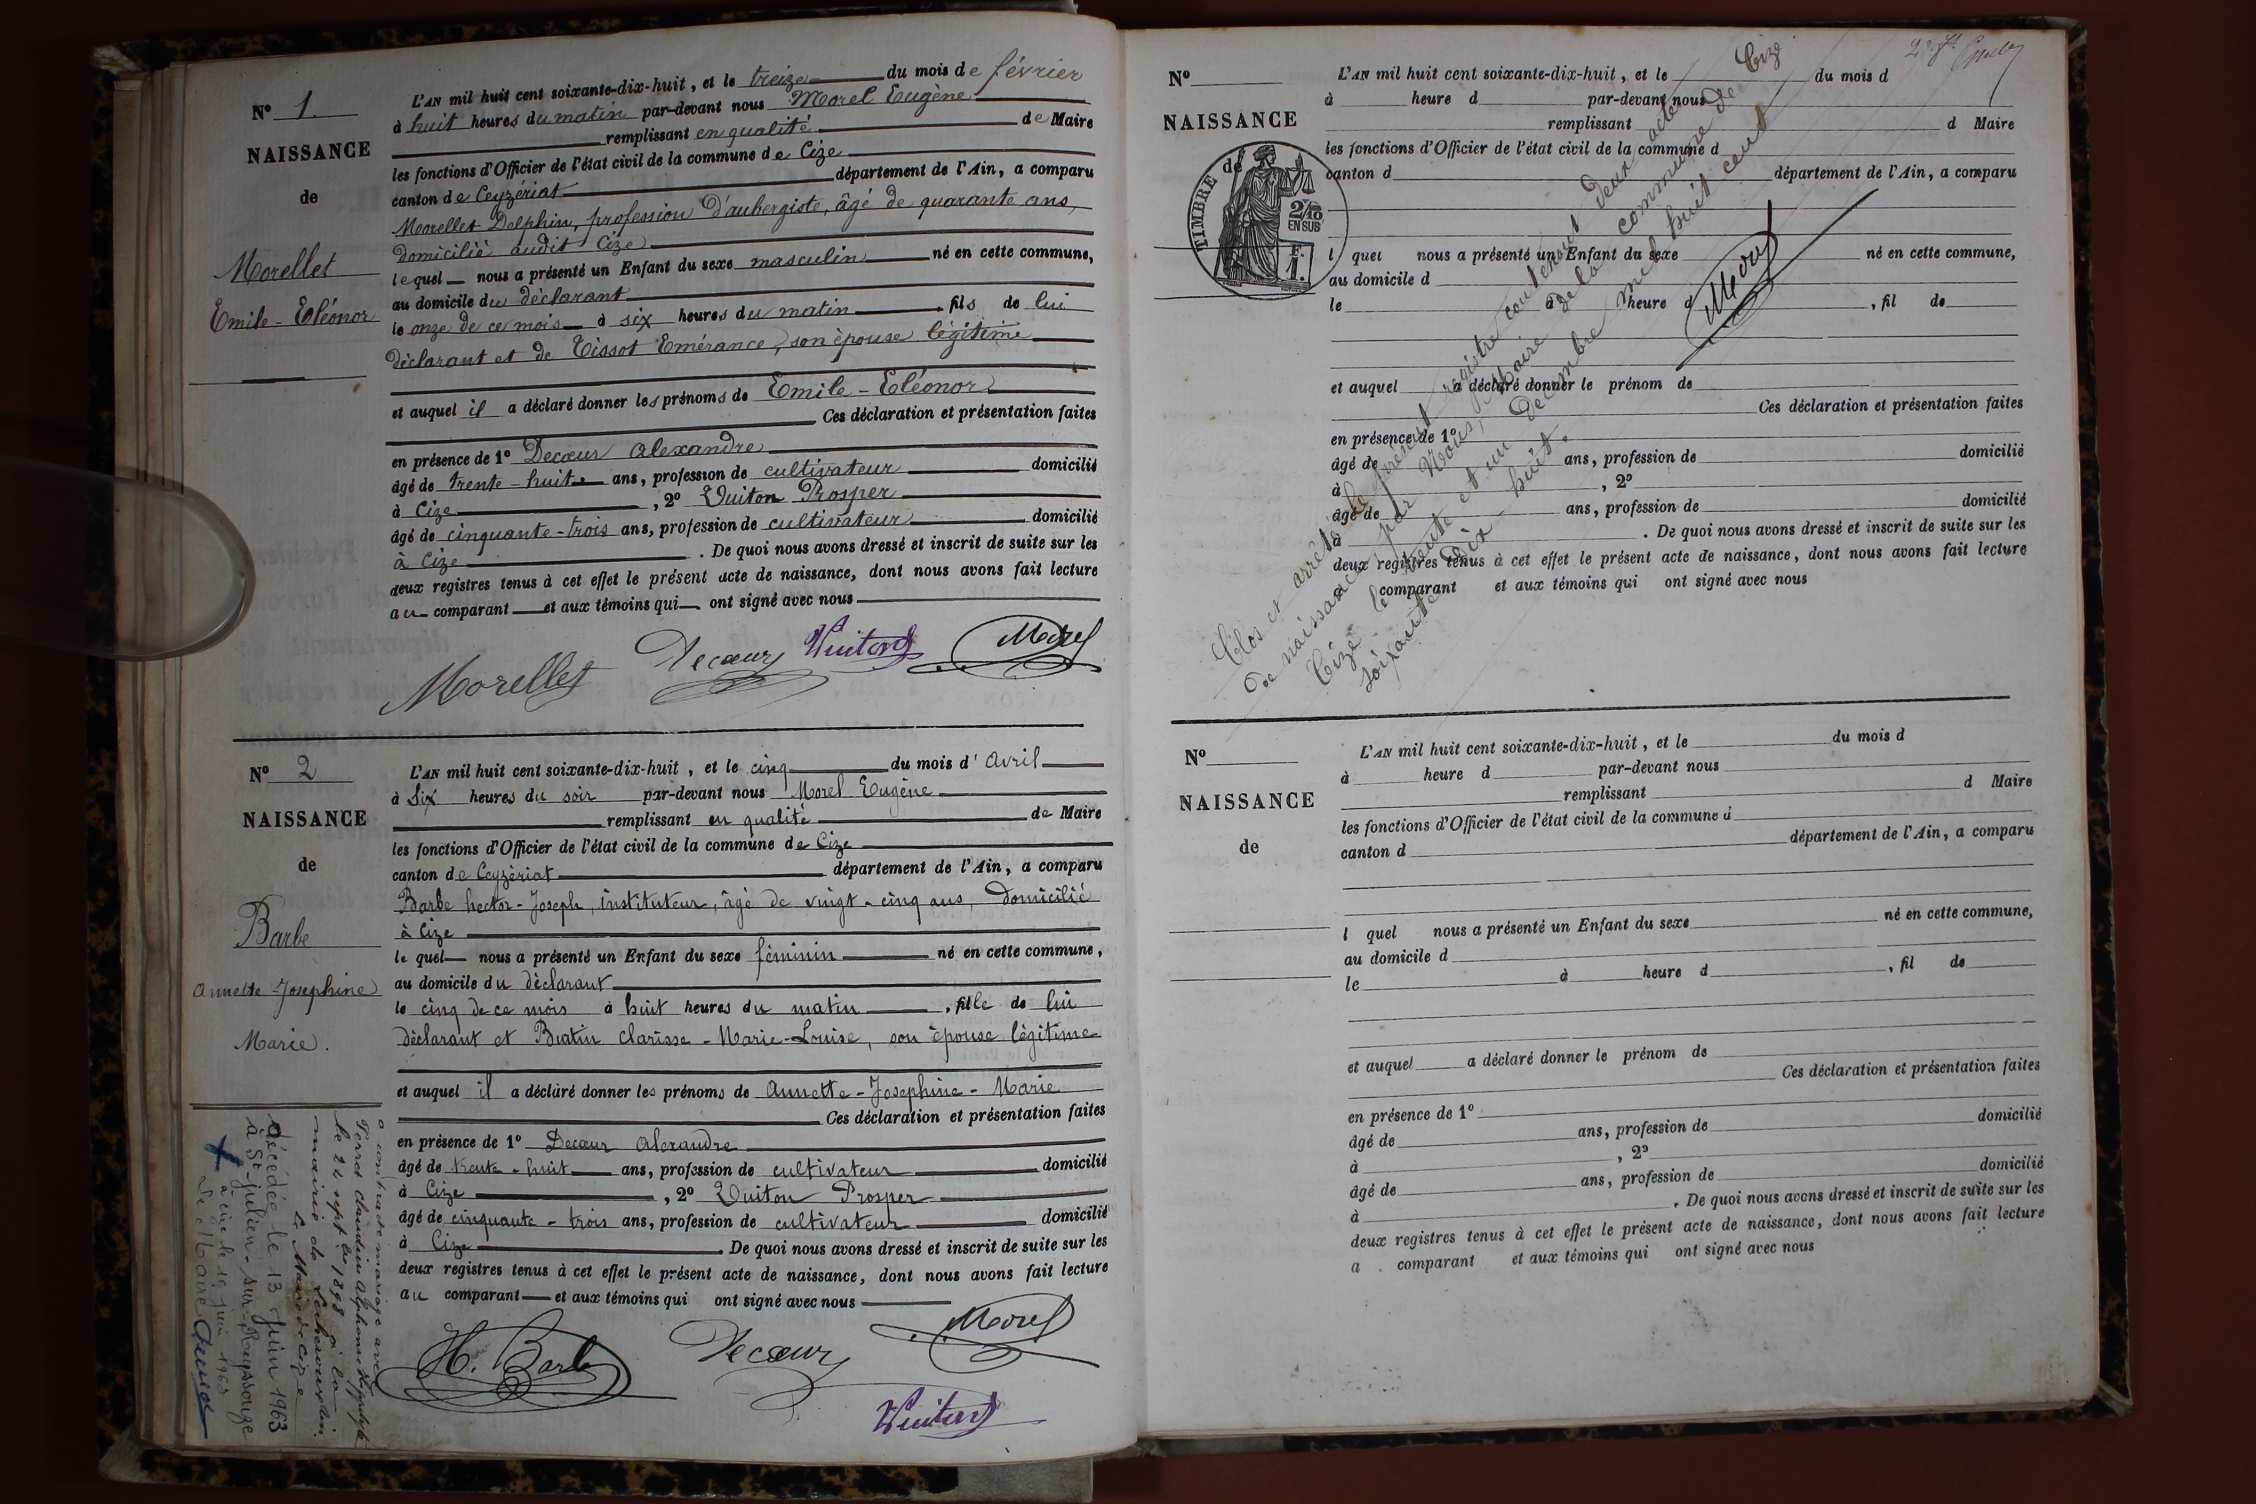 N° 1
NAISSANCE
de
Morellet
Emile-Eléonor
L'AN mil huit cent soixante-dix-huit, et le treize du mois de février
à huit heures du matin par-devant nous Morel Eugène
remplissant en qualité de Maire
les fonctions d'Officier de l'état civil de la commune de Cize
canton de Ceyzériat département de l'Ain, a comparu
Morellet Delphin, profession d'aubergiste, âgé de quarante ans,
domicilié audit Cize
lequel nous a présenté un Enfant du sexe masculin né en cette commune,
au domicile du déclarant
le onze de ce mois à six heures du matin, fils de lui
déclarant et de Tissot Emérance, son épouse légitime
et auquel il a déclaré donner les prénoms de Emile-Eléonor
Ces déclaration et présentation faites
en présence de 1° Decœur Alexandre
âgé de trente-huit ans, profession de cultivateur domicilié
à Cize, 2° Vuiton Prosper
âgé de cinquante-trois ans, profession de cultivateur domicilié
à Cize. De quoi nous avons dressé et inscrit de suite sur les
deux registres tenus à cet effet le présent acte de naissance, dont nous avons fait lecture
au comparant et aux témoins qui ont signé avec nous
Morellet Decœur Vuiton Morel
N° 2
NAISSANCE
de
Barbe
Annette-Josephine
Marie.
L'AN mil huit cent soixante-dix-huit, et le cinq du mois d'avril
à six heures du soir par-devant nous Morel Eugène
remplissant en qualité de Maire
les fonctions d'Officier de l'état civil de la commune de Cize
canton de Ceyzériat département de l'Ain, a comparu
Barbe hector-Joseph, instituteur, âgé de vingt-cinq ans, domicilié
à Cize
le quel nous a présenté un Enfant du sexe féminin né en cette commune,
au domicile du déclarant
le cinq de ce mois à huit heures du matin, fille de lui
déclarant et Buatin Clarisse-Marie-Louise, son épouse légitime
et auquel il a déclaré donner les prénoms de Annette-Josephine-Marie
Ces déclaration et présentation faites
en présence de 1° Decœur Alexandre
âgé de trente-huit ans, profession de cultivateur domicilié
à Cize, 2° Vuiton Prosper
âgé de cinquante-trois ans, profession de cultivateur domicilié
à Cize. De quoi nous avons dressé et inscrit de suite sur les
deux registres tenus à cet effet le présent acte de naissance, dont nous avons fait lecture
au comparant et aux témoins qui ont signé avec nous
H. Barbe Decœur Morel
Vuiton
a contracté mariage avec
Perret Claudius Alphonse Hippolyte
le 24 septbre 1898 à la
mairie de
Le Maire de Cize
décédée le 13 Juin 1963
à St-Julien-sur-Reyssouze
à Cize le 19 juin 1963
Le Maire
N°
NAISSANCE
de
TIMBRE
2/10
EN SUS
F.
1.
L'AN mil huit cent soixante-dix-huit, et le du mois d
à heure d par-devant nous
remplissant d Maire
les fonctions d'Officier de l'état civil de la commune d
canton d département de l'Ain, a comparu
l quel nous a présenté un Enfant du sexe né en cette commune,
au domicile d
le à heure d, fil de
et auquel a déclaré donner le prénom de
Ces déclaration et présentation faites
en présence de 1°
âgé de ans, profession de domicilié
à, 2°
âgé de ans, profession de domicilié
à. De quoi nous avons dressé et inscrit de suite sur les
deux registres tenus à cet effet le présent acte de naissance, dont nous avons fait lecture
a comparant et aux témoins qui ont signé avec nous
Clos et arrêté le présent registre contenant deux actes
de naissance par Nous, Maire de la commune de Cize
Cize le trente et un Décembre mil huit cent
soixante dix-huit.
Morel
N°
NAISSANCE
de
L'AN mil huit cent soixante-dix-huit, et le du mois d
à heure d par-devant nous
remplissant d Maire
les fonctions d'Officier de l'état civil de la commune d
canton d département de l'Ain, a comparu
l quel nous a présenté un Enfant du sexe né en cette commune,
au domicile d
le à heure d, fil de
et auquel a déclaré donner le prénom de
Ces déclaration et présentation faites
en présence de 1°
âgé de ans, profession de domicilié
à, 2°
âgé de ans, profession de domicilié
à. De quoi nous avons dressé et inscrit de suite sur les
deux registres tenus à cet effet le présent acte de naissance, dont nous avons fait lecture
a comparant et aux témoins qui ont signé avec nous